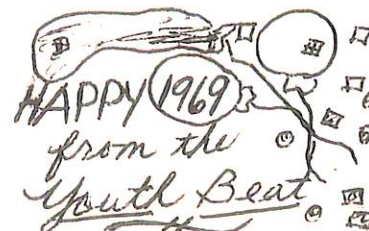 HAPPY 1969
from the
Youth Beat